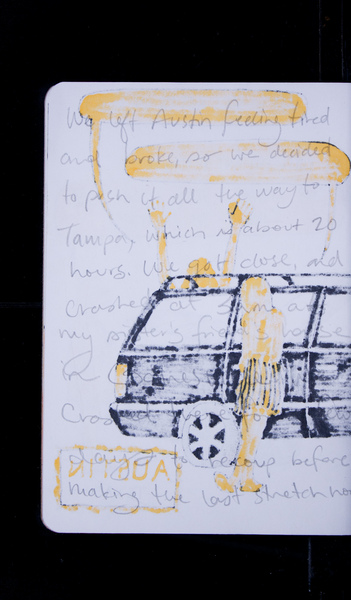 We left Austin feeling tired
and broke, so we decided
to push it all the way to
Tampa, which is about 20
hours. We got close, and
crashed at 5am at
my sister's friend's house
in
Cross
days to recoup before
making the last stretch ho
AUSTIN